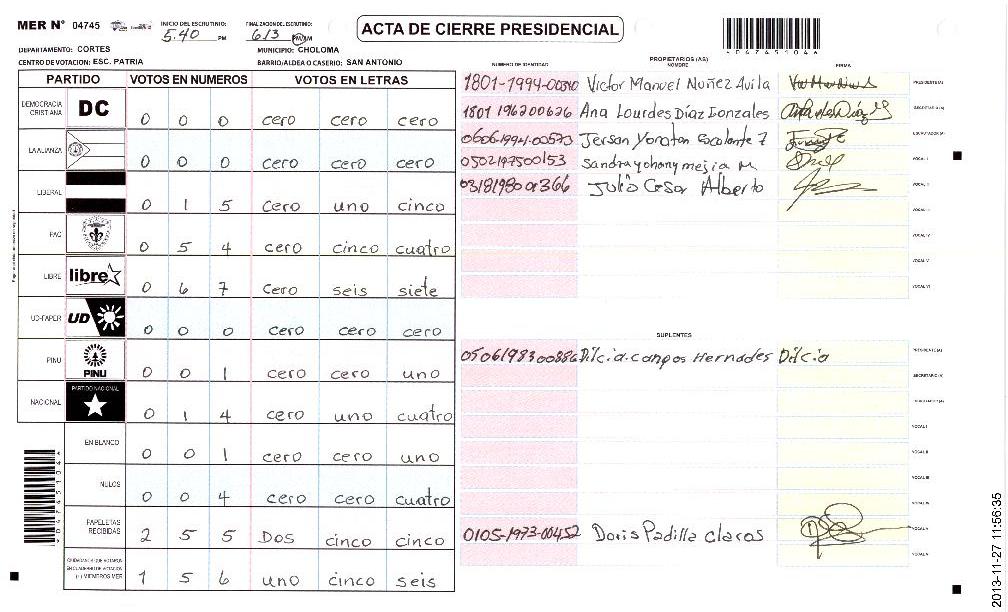 MER Nº 04745
INICIO DEL ESCRUTINIO: 5:40 PM
FINALIZACION DEL ESCRUTINIO: 613 PM/AM
ACTA DE CIERRE PRESIDENCIAL
DEPARTAMENTO: CORTES
MUNICIPIO: CHOLOMA
CENTRO DE VOTACION: ESC. PATRIA
BARRIO/ALDEA O CASERIO: SAN ANTONIO
PARTIDO VOTOS EN NUMEROS VOTOS EN LETRAS
DEMOCRACIA CRISTIANA DC 0 0 0 cero cero cero
LA ALIANZA 0 0 0 cero cero cero
LIBERAL 0 1 5 cero uno cinco
PAC 0 5 4 cero cinco cuatro
LIBRE libre 0 6 7 cero seis siete
UD-FAPER UD 0 0 0 cero cero cero
PINU PINU 0 0 1 cero cero uno
NACIONAL PARTIDO NACIONAL 0 1 4 cero uno cuatro
EN BLANCO 0 0 1 cero cero uno
NULOS 0 0 4 cero cero cuatro
PAPELETAS RECIBIDAS 2 5 5 DOS cinco cinco
(+) MIEMBROS MER 1 5 6 uno cinco seis
*047451044*
PROPIETARIOS (AS)
NUMERO DE IDENTIDAD NOMBRE FIRMA
1801-1994-00340 Victor Manuel Nuñez Avila PRESIDENTE(A)
1801 196200626 Ana Lourdes Díaz Gonzales SECRETARIO (A)
0606-1994-00573 Jerson Yonatan Escalante 7 ESCRUTADOR (A)
0502197500153 Sandra yohany mejia M. VOCAL I
0318198001366 Julio Cesar Alberto VOCAL II
VOCAL III
VOCAL IV
VOCAL V
VOCAL VI
SUPLENTES
0506198300886 Dilcia campos Hernades Dilcia PRESIDENTE(A)
SECRETARIO (A)
ESCRUTADOR (A)
VOCAL I
VOCAL II
VOCAL III
VOCAL IV
0105-1973-00452 Doris Padilla Claros VOCAL V
VOCAL VI
*047451044*
2013-11-27 11:56:35